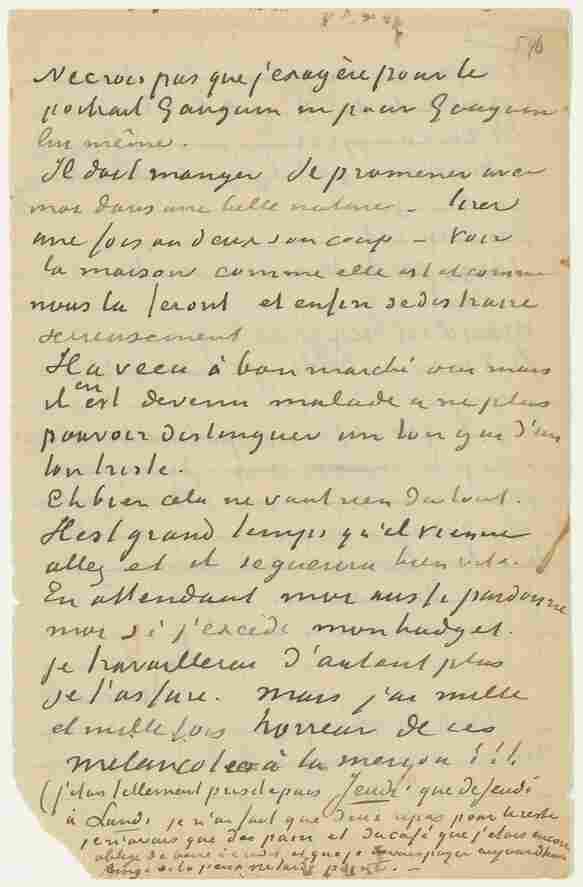 546
Ne crois pas que j'exagère pour le
portrait Gauguin ni pour Gauguin
lui même.
Il doit manger se promener avec
moi dans une belle nature – tirer
une fois ou deux son coup – voir
la maison comme elle est et comme
nous la ferons et enfin se distraire
serieusement
Il a vecu à bon marché oui mais
il en est devenu malade a ne plus
pouvoir distinguer un ton gai d'un
ton triste.
Eh bien cela ne vaut rien du tout.
Il est grand temps qu'il vienne
allez et il se guerira bien vite.
En attendant moi aussi pardonne
moi si j'excède mon budget.
je travaillerai d'autant plus
je t'assure. Mais j'ai mille
et mille fois horreur de ces
melancolies à la meryon !!!
(j'etais tellement pris depuis Jeudi que de Jeudi
à Lundi je n'ai fait que deux repas pour le reste
je n'avais que du pain et du café que j'etais encore
obligé de boire à credit et que je devais payer aujourdhui
si tu peux ne tarde point. –